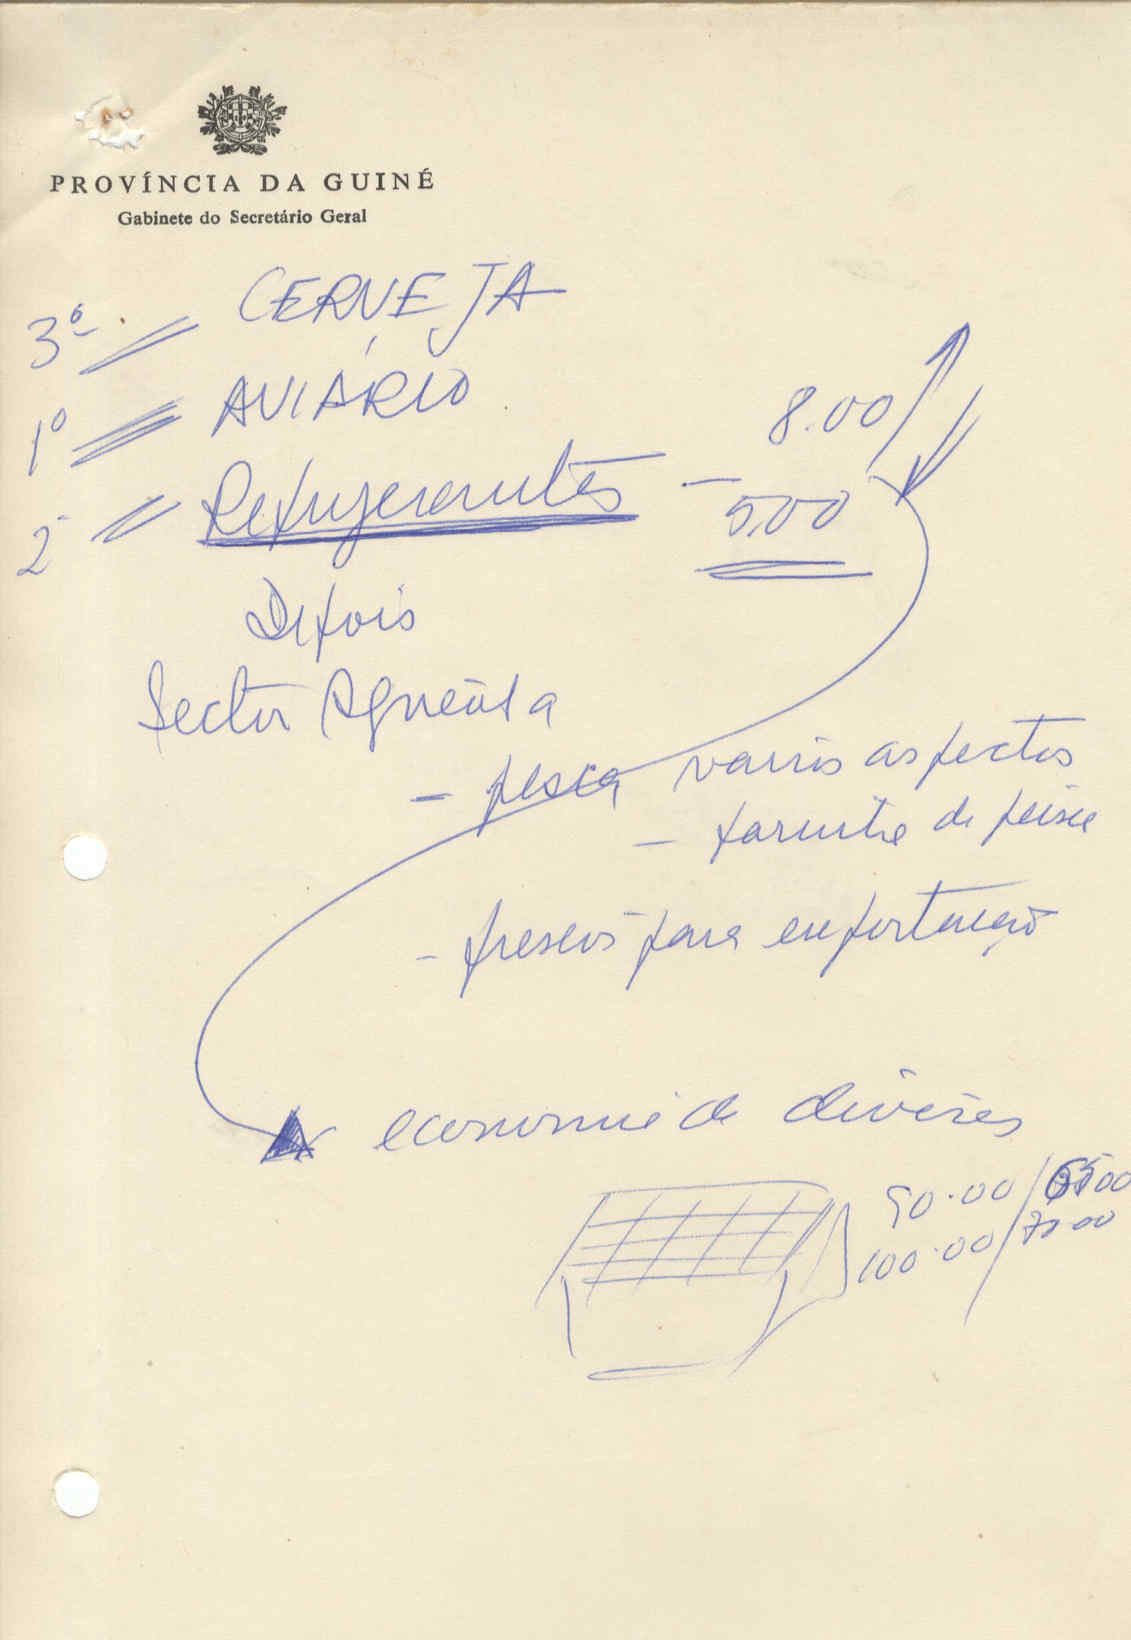 PROVÍNCIA DA GUINÉ
Gabinete do Secretário Geral
3º CERVEJA
1º AVIÁRIO
2º Refrigerantes — 8.00
5.00
Depois
Sector Agrícola
- pesca varios aspectos
- farinha de peixe
- frescos para exportação
economia de divisas
90.00 / 65.00
100.00 / 70.00